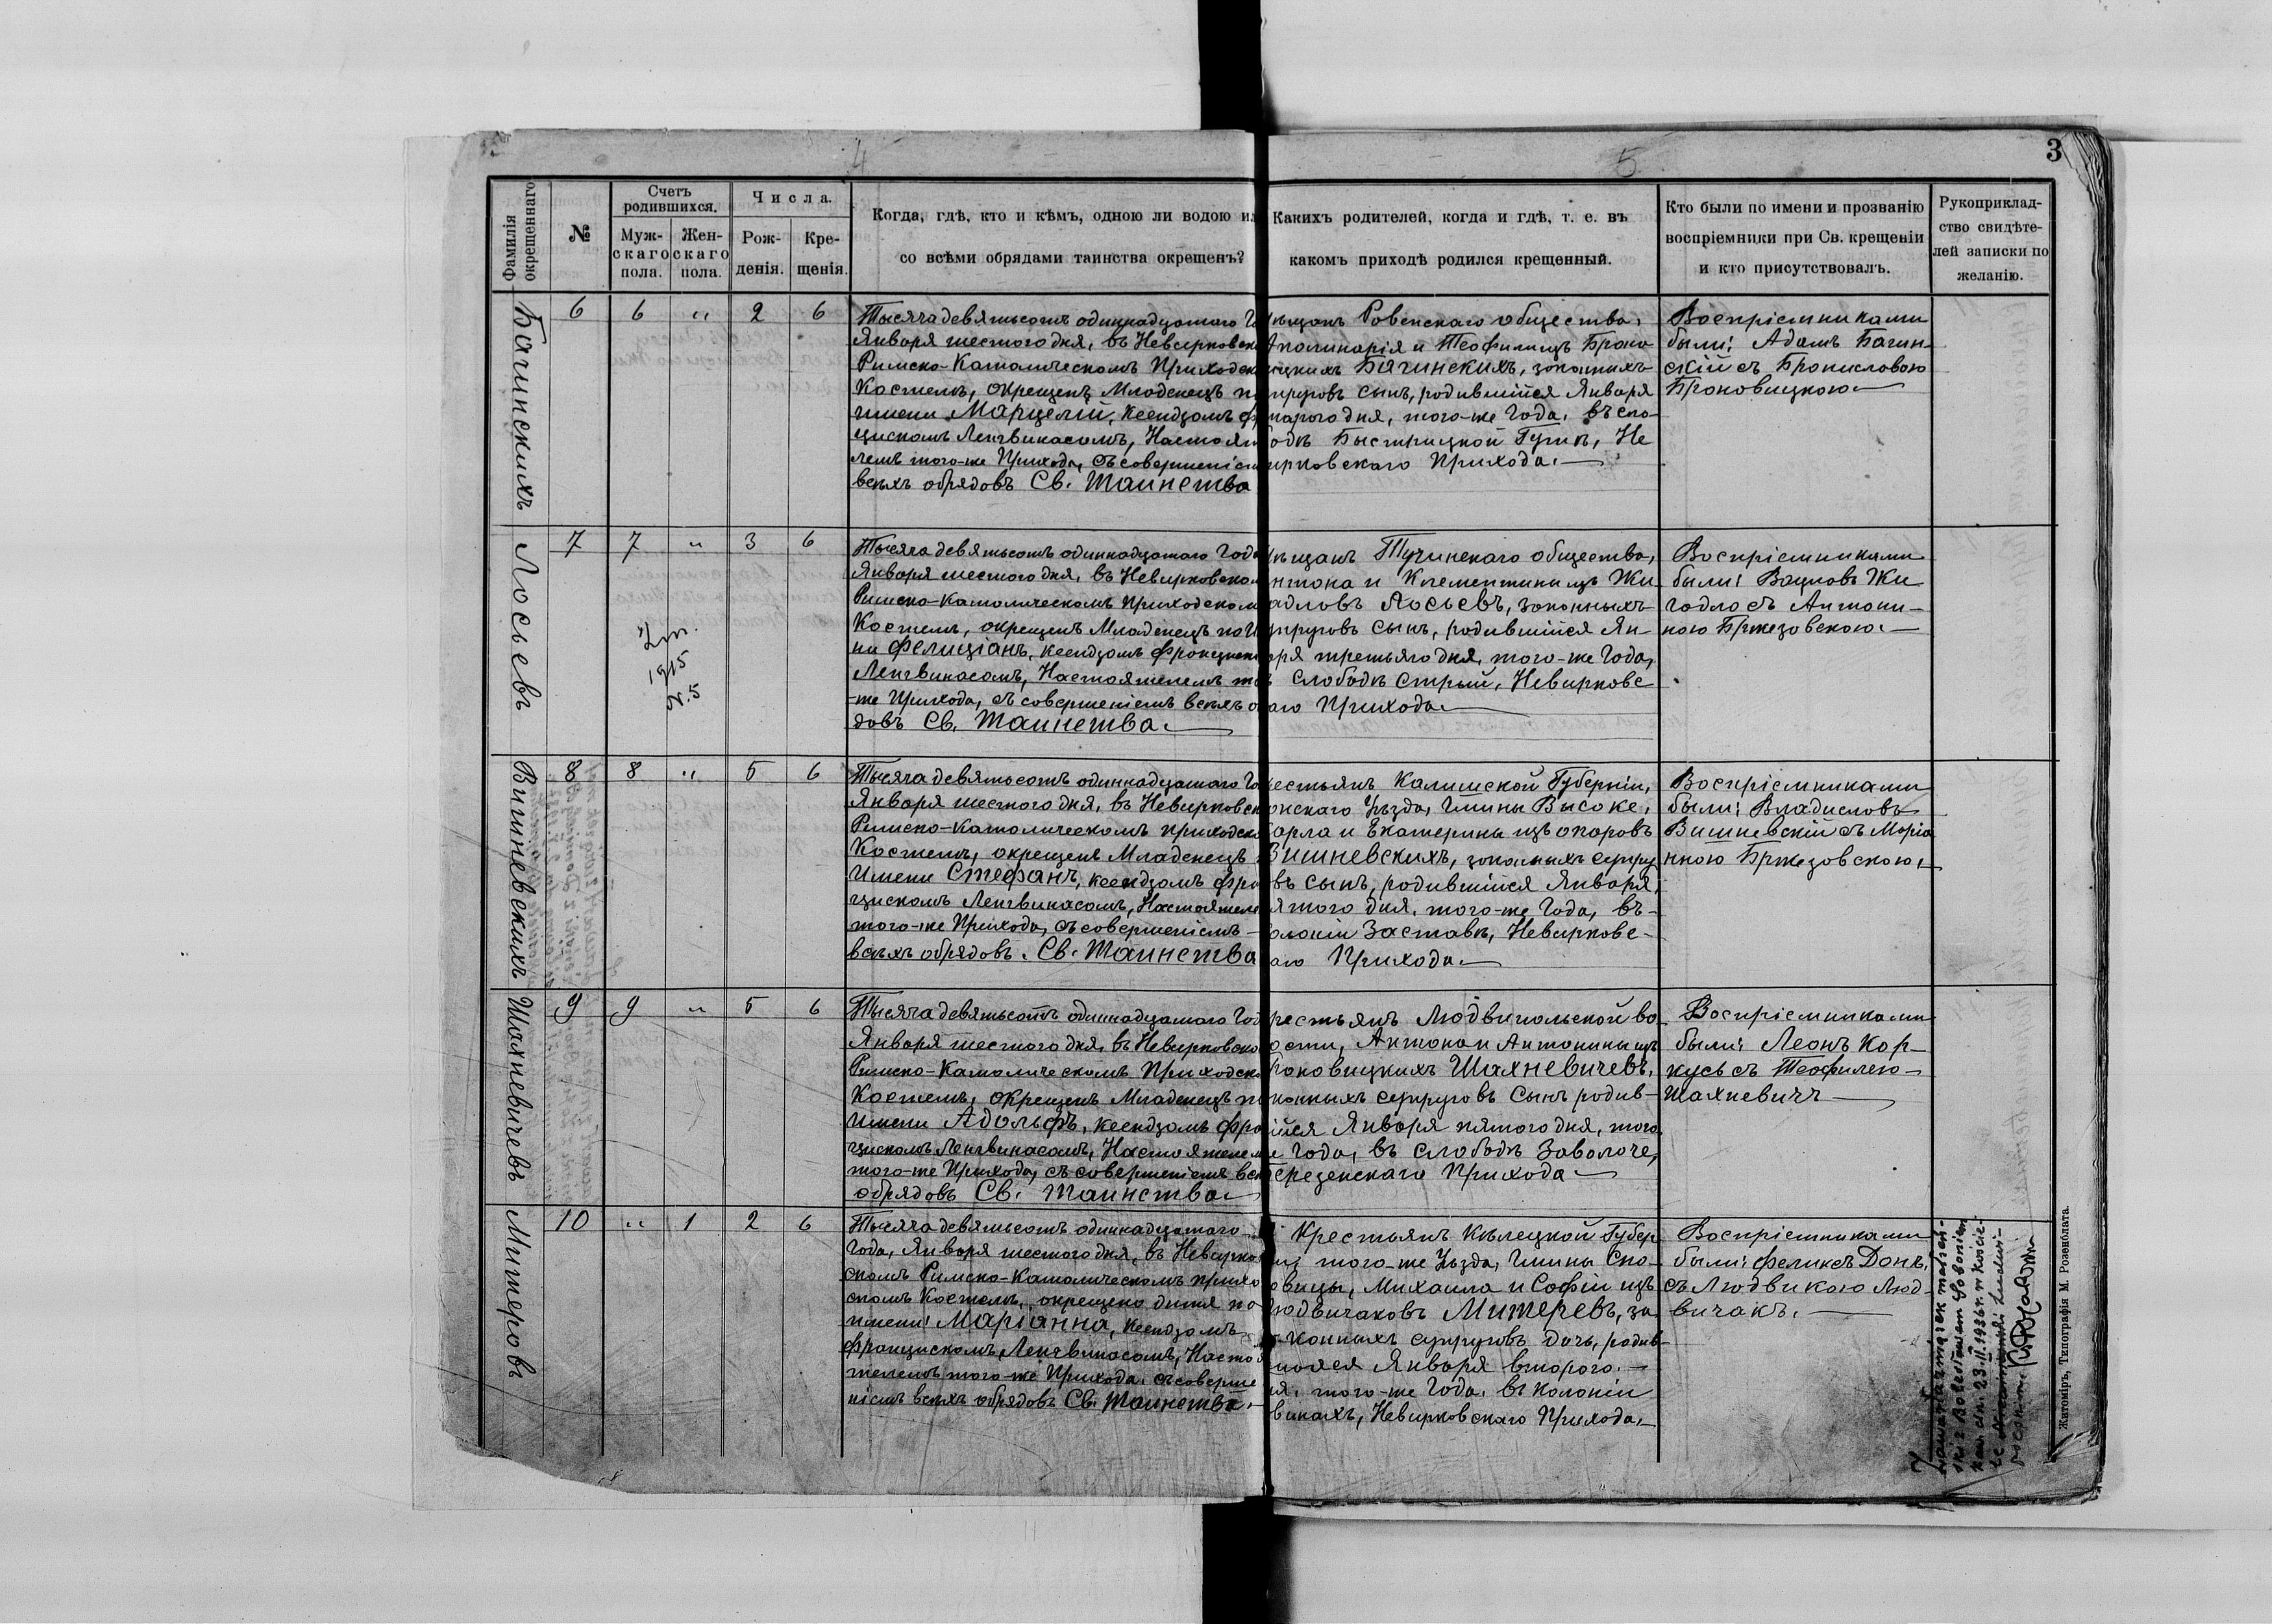 3
4
5
Фамилія окрещеннаго
№
Счетъ родившихся.
Муж-скаго пола.
Жен-скаго пола.
Числа.
Рож-денія.
Кре-щенія.
Когда, гдѣ, кто и кѣмъ, одною ли водою ил
со всѣми обрядами таинства окрещенъ?
Какихъ родителей, когда и гдѣ, т. е. въ
какомъ приходѣ родился крещенный.
Кто были по имени и прозванію
воспріемники при Св. крещеніи
и кто присутствовалъ.
Рукоприклад-
ство свидѣте-
лей записки по
желанію.
Багинскихъ
6 6 " 2 6
Тысяча девятьсотъ одиннадцатаго Го
Января шестого дня, въ Невирковско
Римско-Католическомъ Приходско
Костелѣ, окрещенъ Младенецъ по
имени Марцелій, Ксендзомъ Фр
цискомъ Ленгвинасомъ, Настоят
лемъ того-же Прихода, съ совершеніе
всѣхъ обрядовъ Св. Таинства
ѣщанъ Ровенскаго общества,
Аполинарія и Теофили изъ Броно
ицкихъ Багинскихъ, законныхъ
пруговъ сынъ, родившійся Января
тораго дня, того-же Года, въ сло-
одѣ Быстрицкой Гутѣ, Не
ирковскаго Прихода.
Воспріемниками
были: Адамъ Багин-
скій съ Брониславою
Броновицкою
Лосьевъ
7 7 " 3 6
Zm.
1915
N. 5
Тысяча девятьсотъ одиннадцатаго Года
Января шестого дня, въ Невирковском
Римско-Католическомъ Приходском
Костелѣ, окрещенъ Младенецъ по И
ни Фелиціанъ, Ксендзомъ Францис
Ленгвинасомъ, Настоятелемъ то
-же Прихода, съ совершеніемъ всѣхъ о
довъ Св. Таинства.
ѣщанъ Тучинскаго общества,
нтона и Клементины изъ Жи
адловъ Лосьевъ, законныхъ
упруговъ сынъ, родившійся Ян-
аря третьяго дня, того-же Года,
ъ слободѣ Стрый, Невирковс
аго Прихода
Воспріемниками
были: Вацлавъ Жи
годло съ Антони-
ною Бржезовскою.
Вишневскихъ
8 8 " 5 6
Тысяча девятьсотъ одиннадцатаго Го
Января шестого дня, въ Невирковск
Римско-Католическомъ Приходско
Костелѣ, окрещенъ Младенецъ
Имени Стефанъ, Ксендзомъ Фра
цискомъ Ленгвинасомъ, Настоятеле
того-же Прихода, съ совершеніемъ
всѣхъ обрядовъ. Св. Таинства
естьянъ Калишской Губерніи,
онскаго Уѣзда, Гмины Высоке,
арла и Екатерины изъ
Вишневскихъ, законныхъ супру
въ сынъ, родившійся Января,
ятого дня, того-же Года, въ
олоніи Заставѣ, Невирковс-
аго Прихода.
Воспріемниками
были: Владиславъ
Вишневскій съ Маріа
нною Бржезовскою,
Шахневичевъ
9 9 " 5 6
Тысяча девятьсотъ одиннадцатаго Год
Января шестого дня, въ Невирковско
Римско-Католическомъ Приходско
Костелѣ, окрещенъ Младенецъ по
имени Адольфъ, Ксендзомъ Фра
цискомъ Ленгвинасомъ, Настоятелем
того-же Прихода, съ совершеніемъ все
обрядовъ Св. Таинства
рестьянъ Людвипольской во
ости, Антона и Антонины изъ
роновицкихъ Шахневичевъ,
конныхъ супруговъ сынъ родив-
ійся Января пятого дня, того
е Года, въ слободѣ Заволоче,
ерезенскаго Прихода
Воспріемниками
были: Леонъ Кор-
кусь съ Теофилею
Шахневичъ
Митеровъ
10 " 1 2 6
Тысяча девятьсотъ одиннадцатаго
Года, Января шестого дня, въ Невирков
скомъ Римско-Католическомъ Прихо
скомъ Костелѣ, окрещено дитя по
имени Маріанна, Ксендзомъ
Францискомъ Ленгвинасомъ, Настоя
телемъ того-же Прихода, съ соверше
ніемъ всѣхъ обрядовъ Св. Таинства.
Крестьянъ Кѣлецкой Губер
того-же Уѣзда, Гмины Сно-
овицы, Михаила и Софіи изъ
юдвичаковъ Митеревъ, за
конныхъ супруговъ дочь, родив-
шаяся Января второго
ня, того-же Года, въ колоніи
винахъ, Невирковскаго Прихода.
Воспріемниками
были: Феликсъ Донь,
съ Людвикою Люд-
вичакъ.
Zawarła związek małżeń-
ski z Bolesławem Soboniem
23.II.1936 r. w koście-
le
Житоміръ, Типографія М. Розенблата.